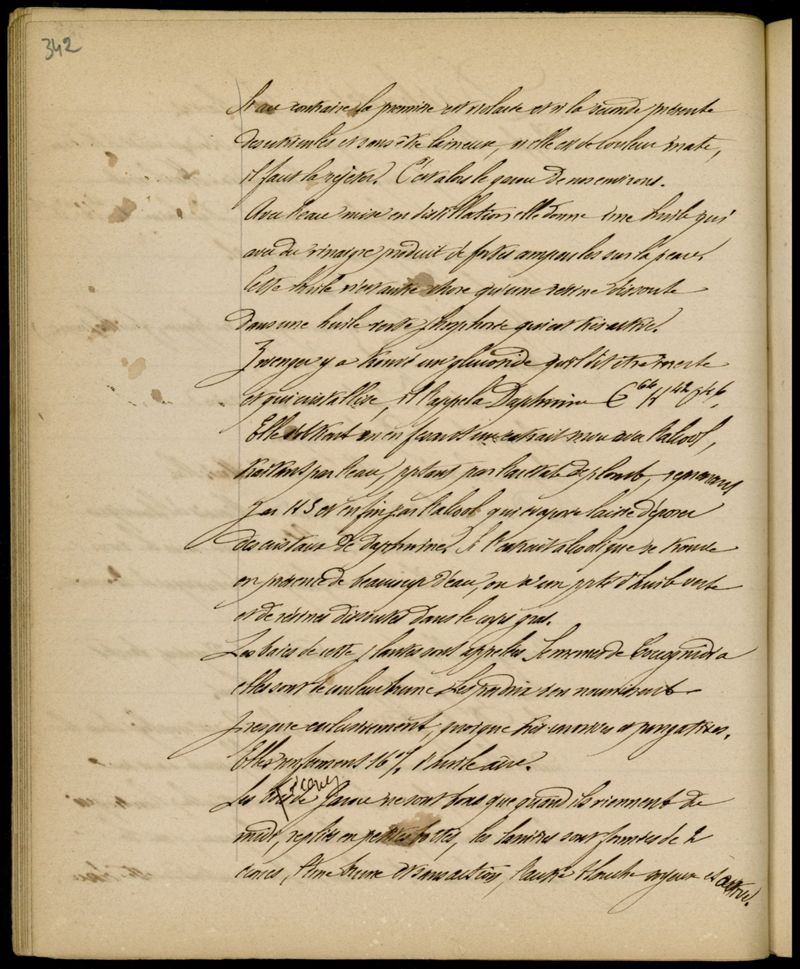 342
Si au contraire la première est rosée et si la seconde présente
des et sans être laineux, si elle est de couleur mate,
il faut la rejeter. C'est alors le garou de nos environs.
Avec l'eau mise en distillation elle donne une huile qui
avec du vinaigre produit de fortes ampoules sur la peau.
Cette huile n'est autre chose qu'une résine dissoute
dans une huile verte qui est très active.
y a trouvé un glucoside qu'il dit être inerte
et qui cristallise, il l'appela Daphnine C
Elle s'obtient en en faisant un extrait mou avec l'alcool,
traitant par l'eau, pptant par l'acétate de plomb, reprenant
par HS et enfin par l'alcool qui évaporé laisse déposer
des cristaux de daphnine. Si l'extrait alcoolique se trouve
en présence de beaucoup d'eau, on a un ppté d'huile verte
et de résines dissoutes dans le corps gras.
Les baies de cette plante sont appelées Semences de Coccognidia
elles sont de couleur brune. Les perdrix s'en nourrissent
presque exclusivement, quoique très amères et purgatives.
Elles renferment 16 % d'huile âcre.
Les de Garou ne sont bons que quand ils viennent du
midi, repliés en petites bottes, les lanières sont formées de 2
l'une brune et sans action, l'autre blanche soyeuse et active.